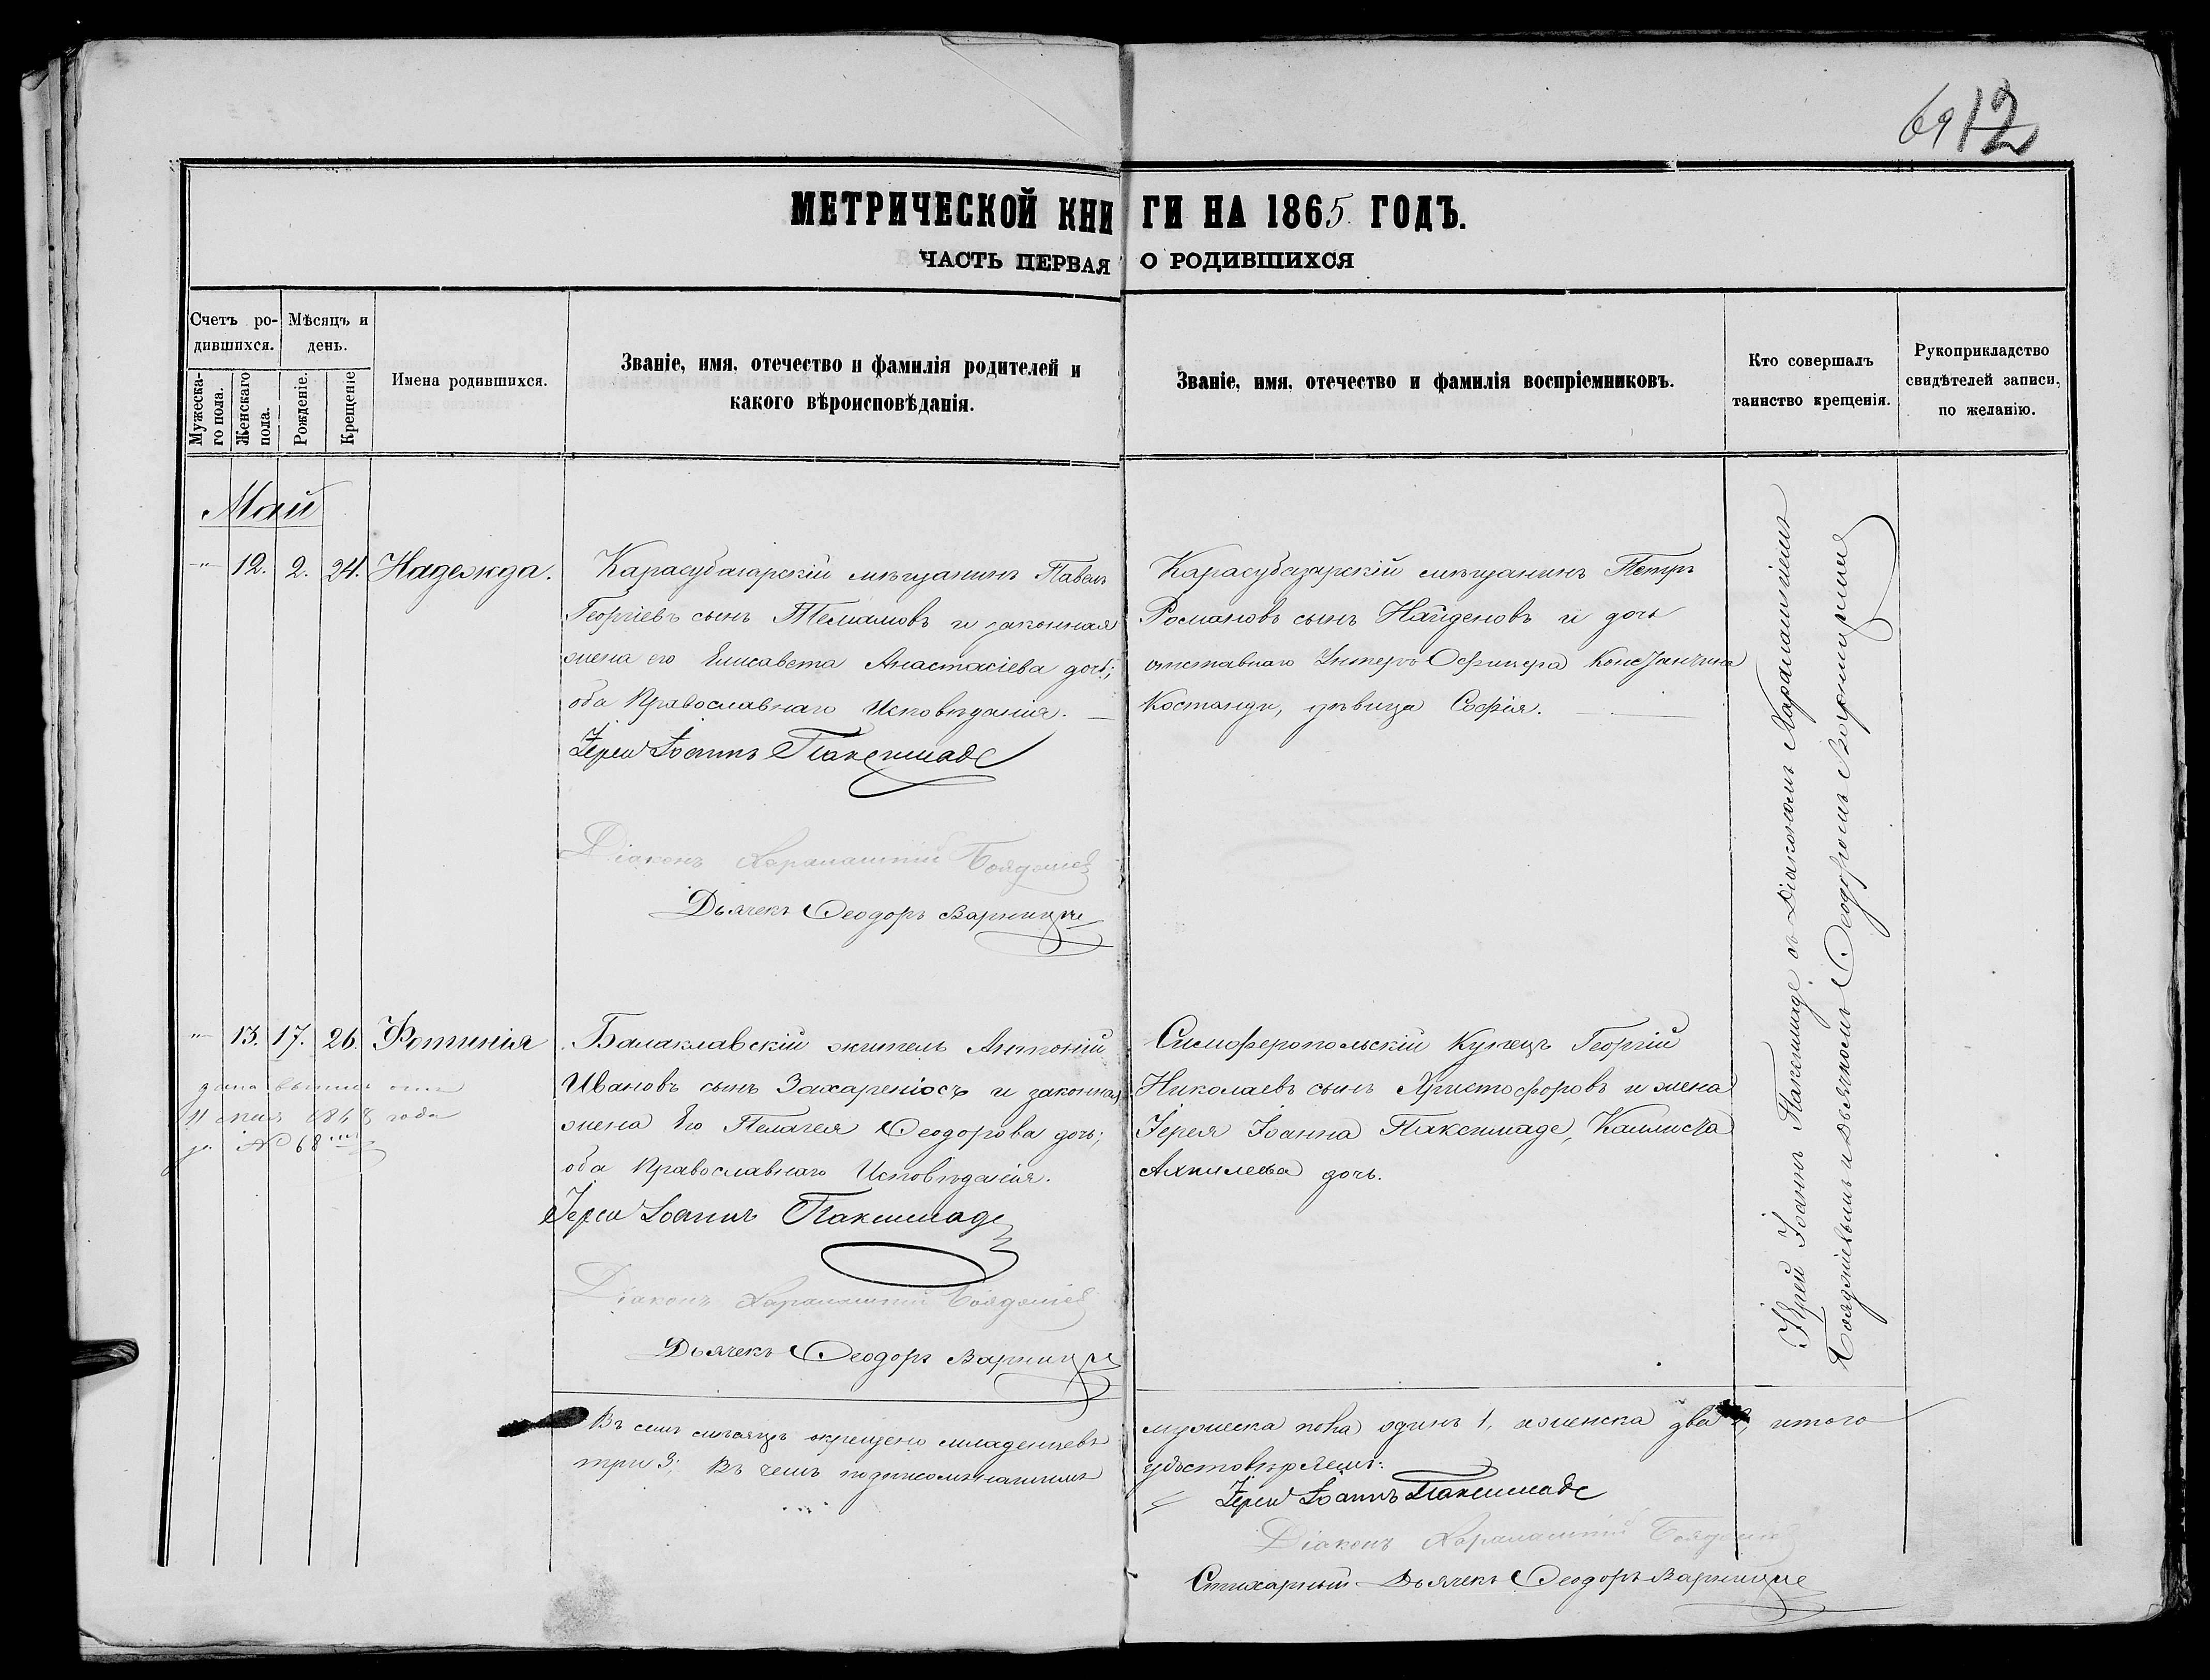 69 12
МЕТРИЧЕСКОЙ КНИГИ НА 1865 ГОДЪ.
ЧАСТЬ ПЕРВАЯ О РОДИВШИХСЯ
Счетъ ро-
дившихся.
Мужеска-
го пола.
Женскаго
пола.
Мѣсяцъ и
день.
Рожденіе.
Крещеніе
Имена родившихся.
Званіе, имя, отечество и фамилія родителей и
какого вѣроисповѣданія.
Званіе, имя, отечество и фамилія воспріемниковъ.
Кто совершалъ
таинство крещенія.
Рукоприкладство
свидѣтелей записи,
по желанію.
Май
" 12. 2. 24. Надежда.
Карасубазарскій мѣщанинъ Павелъ
Георгіевъ сынъ и законная
жена его Елисавета Анастасіева дочь;
оба Православнаго Исповѣданія.
Іерей Іоаннъ Паксимаде
Діаконъ Харалампій Бояджіев
Дьячекъ Ѳеодоръ Варницце
Карасубазарскій мѣщанинъ Петръ
Романовъ сынъ Найденовъ и дочь
отставнаго Унтеръ-Офицера Констанчина
Костанди, дѣвица Софія.
" 13. 17. 26. Фотинія
дана выпись
мая 1868 года
№ 68
Балаклавскій житель Антоній
Ивановъ сынъ Захареніосъ и законная
жена Его Пелагея Ѳеодорова дочь;
оба Православнаго Исповѣданія.
Іерей Іоаннъ Паксимаде
Діаконъ Харалампій Бояджіев
Дьячекъ Ѳеодоръ Варницце
Симферопольскій Купецъ Георгій
Николаевъ сынъ Христофоровъ и жена
Іерея Іоанна Паксимаде, Каллиста
Ахиллева дочь.
Іерей Іоаннъ Паксимаде съ Діакономъ Харалампіемъ
Бояджіевымъ и Дьячкомъ Ѳеодоромъ Варницце
Въ семъ мѣсяцѣ окрещено младенцевъ мужеска пола одинъ 1, женска два 2, итого
три 3; Въ чемъ подписомъ нашимъ удостовѣряемъ:
Іерей Іоаннъ Паксимаде
Діаконъ Харалампій Бояджіев
Стихарный Дьячекъ Ѳеодоръ Варницце